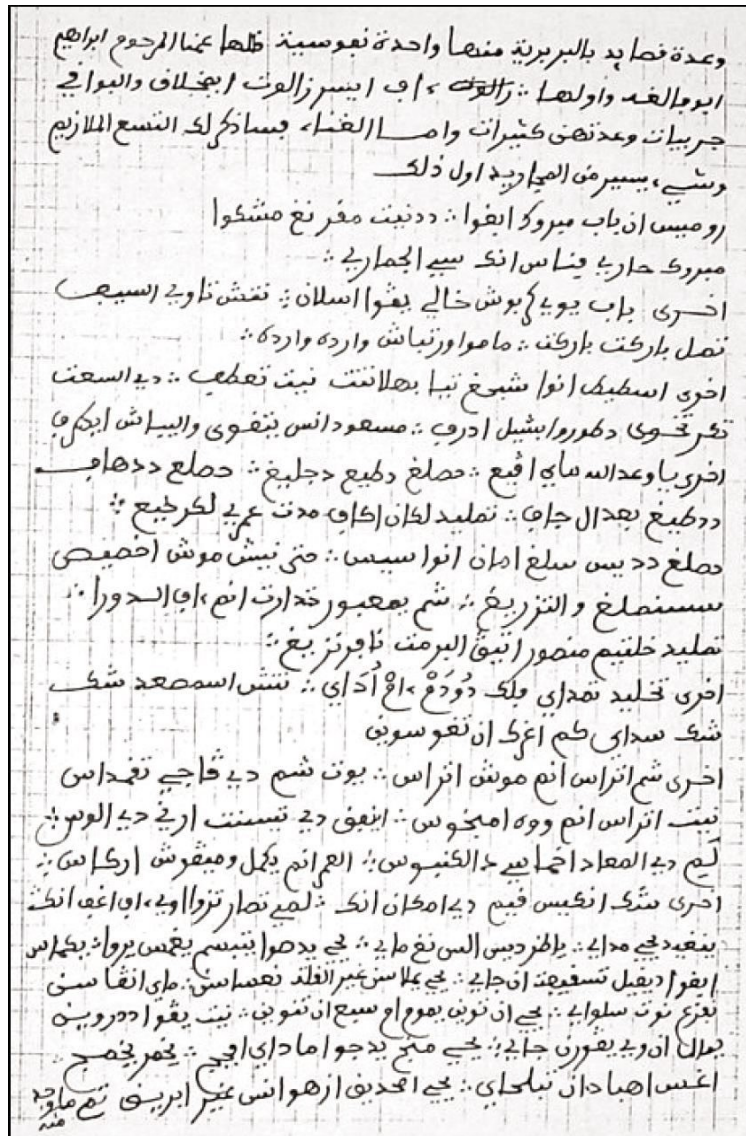 وعدة قصايد بالبربرية منها واحدة نفوسية قالها عمنا المرحوم ابراهيم
ابو بالغه واولها ∴ زالوت ءاف ايسر زالوت ابخلاف والبوافي
جربيات وعدتهن كثيرات واما الغناء فساذكر لك التسع الملازيم
وشيء يسير من المجاريد اول ذلك
روميس ان باب مبروك ايفوا ∴ ددنيت مقر نغ مشكوا
مبروك حاربي فناس انك سي الجماربي ∴
اخرى باب يويي بوش خالي يقوا اسلان ∴ نتش تاويي السيف
تمل باركت باركت ∴ ماموا ورتباش وارده وارده ∴
اخرى اسطيك انوا شبغ تيا بهلا نتت نيت تعطف ∴ دي السعت
تكر تخوى دطوروا بشيل ادرف ∴ مسعود انس يتقوى والبياش ايكرف
اخرى يا وعد الله ماي اقيغ ∴ حصلغ دطيع دجليغ ∴ حصلغ ددهاف
ددطيغ بعد ال جاف ∴ تمليد لكان اكاف مدت عمري لكرخيغ ∴
حصلغ دديس سلغ امان انوا سيس ∴ حتى نيش موش اخصيص
سستملغ والتزريغ ∴ شم بمعبور خدارت انم ءاف الدورا ∴
تمليد خلتيم منصور اتيق البرمت تافرنزيغ ∴
اخرى تخليد تمداي ملك دُودَمْ ءاعْ اُدَاي ∴ نتش اسمصعد شك
شك سداي كم اغرك ان تفوسوين
اخرى شم اتراس انم موش اتراس ∴ يوت شم دي ڤاجي تغمداس
نيت اتراس انم ووه امنحوس ∴ اينفق دي تيسنت ارني دي الوس ∴
كيم دي المعاد احماسي د الكنيوس ∴ العمر انم يكمل ومنقوش اركاس ∴
اخرى شك انكيس قيم دي امكان انك ∴ لمي تصار تزوا اوبي ءاف اغف انك
ينفيد يجي مداي ∴ ياطر ديس السن نغ ماي ∴ يجي يدحوا يتبسم يغمس يروا ∴ بكماس
ايفوا ديفيل تسفيفت ان جاي ∴ يجي يملاس غير الفلد نعساس ∴ ماي انقاسن
يفزع نوت سلواي ∴ يجي ان نوبن يموم ام سبع ان تنوبن ∴ نيت يقوا ددرويش
يموال ان وبي يفورن جاي ∴ يجي منح يدجوا اما داي افيح ∴ يخمر يخمج
اغس اهباد ان تبلحاي ∴ يجي امحديق ازهوانس غير ابريسن تم ما وجد
منه